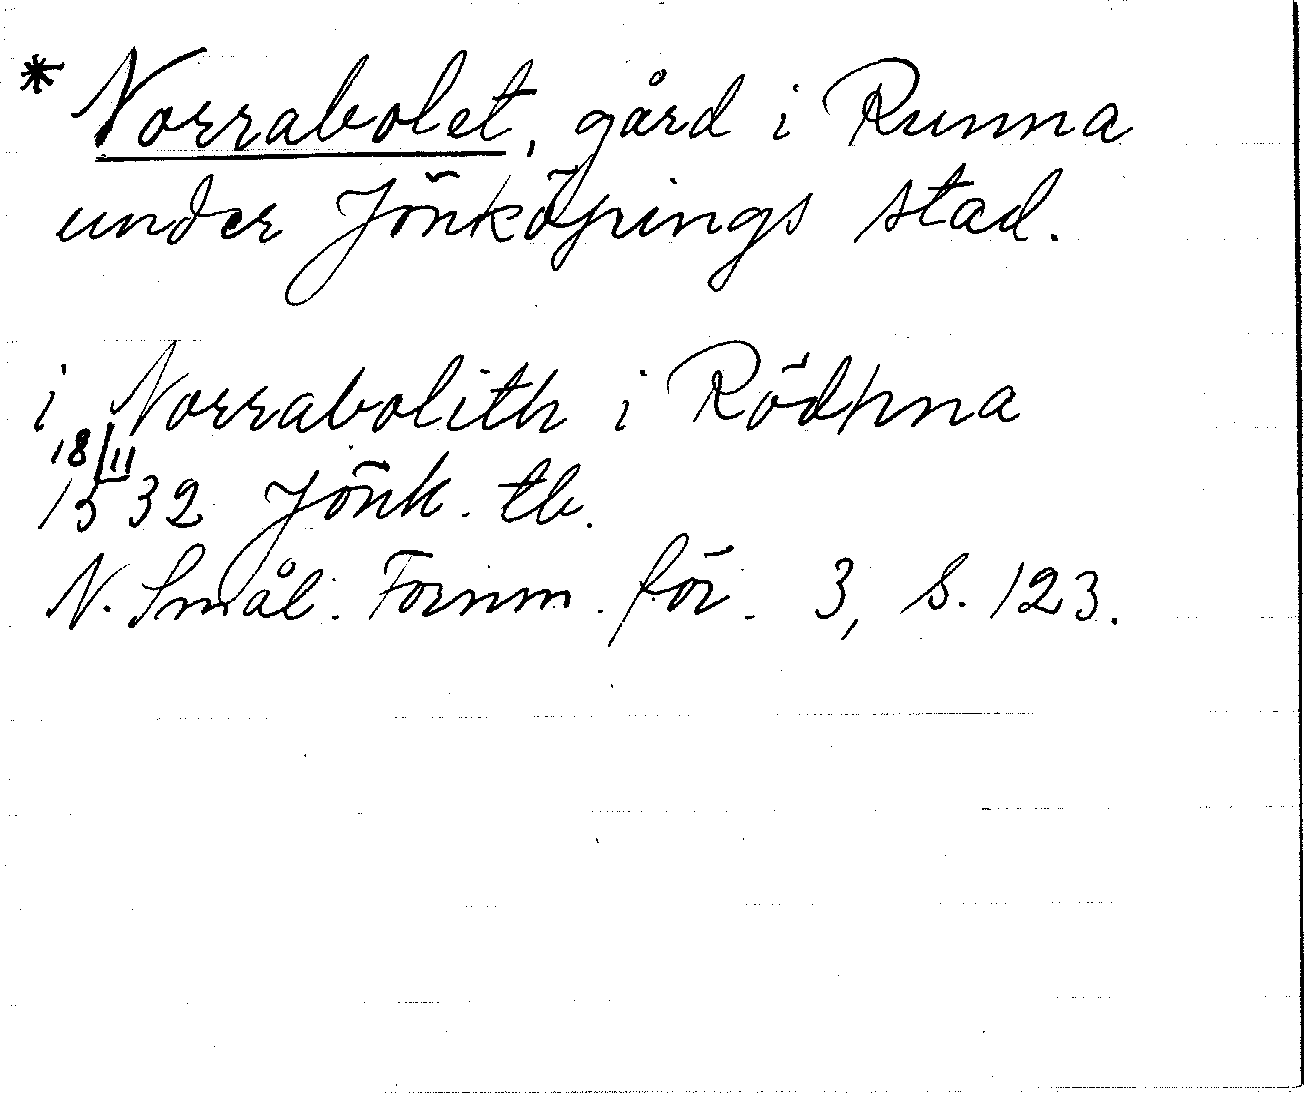 * Norrabolet, gård i Runna
under Jönköpings stad.
i Norrabolith i Rödhna
18/11
1532 Jönk. tb.
N. Smål. Fornm. för. 3, s. 123.